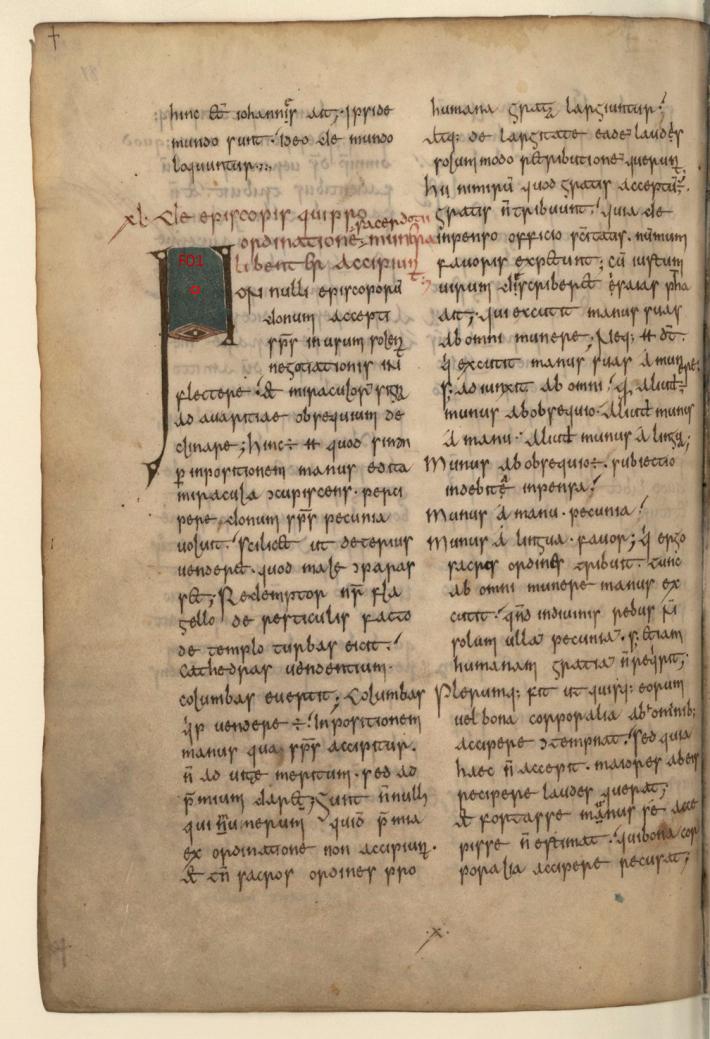 hinc & iohannis ait; ipsi de
mundo sunt. ideo de mundo
loquuntur;
xl. De episcopis qui pro
sacerdotii
ordinatione munera
libenter accipiunt;
FO1
Non nulli episcoporū
donum accepti
sp̄s in usum solent
negotiationis in
flectere. & miraculorū signa
ad auaritiae obsequium de
clinare; hinc ÷ quod simon
p inpositionem manus edita
miracula ɔcupiscens. perci
pere donum sp̄s pecunia
uoluit. scilicet ut deterius
uenderet. quod male ɔparas
set; Redemptor nr̄ fla
gello de resticulis facto
de templo turbas eicit.
cathedras uendentium
columbas euertit; Columbas
uendere ÷ Inpositionem
manus qua sp̄s accipitur.
n̄ ad uitę meritum. sed ad
p̄mium dare; Sunt n̄nulli
qui nūmerum quidē p̄mia
ex ordinatione non accipiunt.
& tn̄ sacros ordines pro
humana gratia largiuntur.
Atq; de largitate eadē laudes
solummodo retributionē querunt.
hii nimirū quod gratis acceptū.
gratis n̄ tribuunt. quia de
inpenso officio sc̄itatis. nūmum
fauoris expetunt; cū iustum
uirum describeret esaias pha
ait; qui excutit manus suas
ab omni munere. Neq;
q̄ excutit manus suas a munere.
s; adiunxit ab omni. aliud
munus ab obsequio. Aliud munus
a manu. Aliud munus a lingua;
Munus ab obsequio ÷. subiectio
indebitę inpensa.
Munus a manu. pecunia.
Munus a lingua. fauor; q̄ ergo
sacros ordines tribuit. tunc
ab omni munere manus ex
cutit. qn̄do indiuinis rebus n̄
solum ulla pecunia. s; etiam
humanam gratia n̄ reqrit;
Plerumq; fit ut quisq; eorum
uel bona corporalia ab omnib;
accipere ɔtempnat. sed quia
haec n̄ accepit. maiores ab eis
recipere laudes querat;
& fortasse manus se acce
pisse n̄ estimat. qui bona cor
poralia accipere recusat;
x